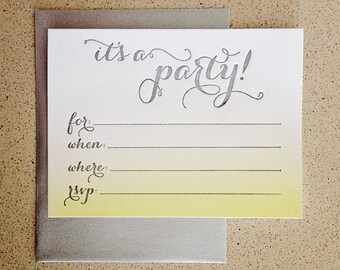 it's a
party!
for:
when:
where:
rsvp: